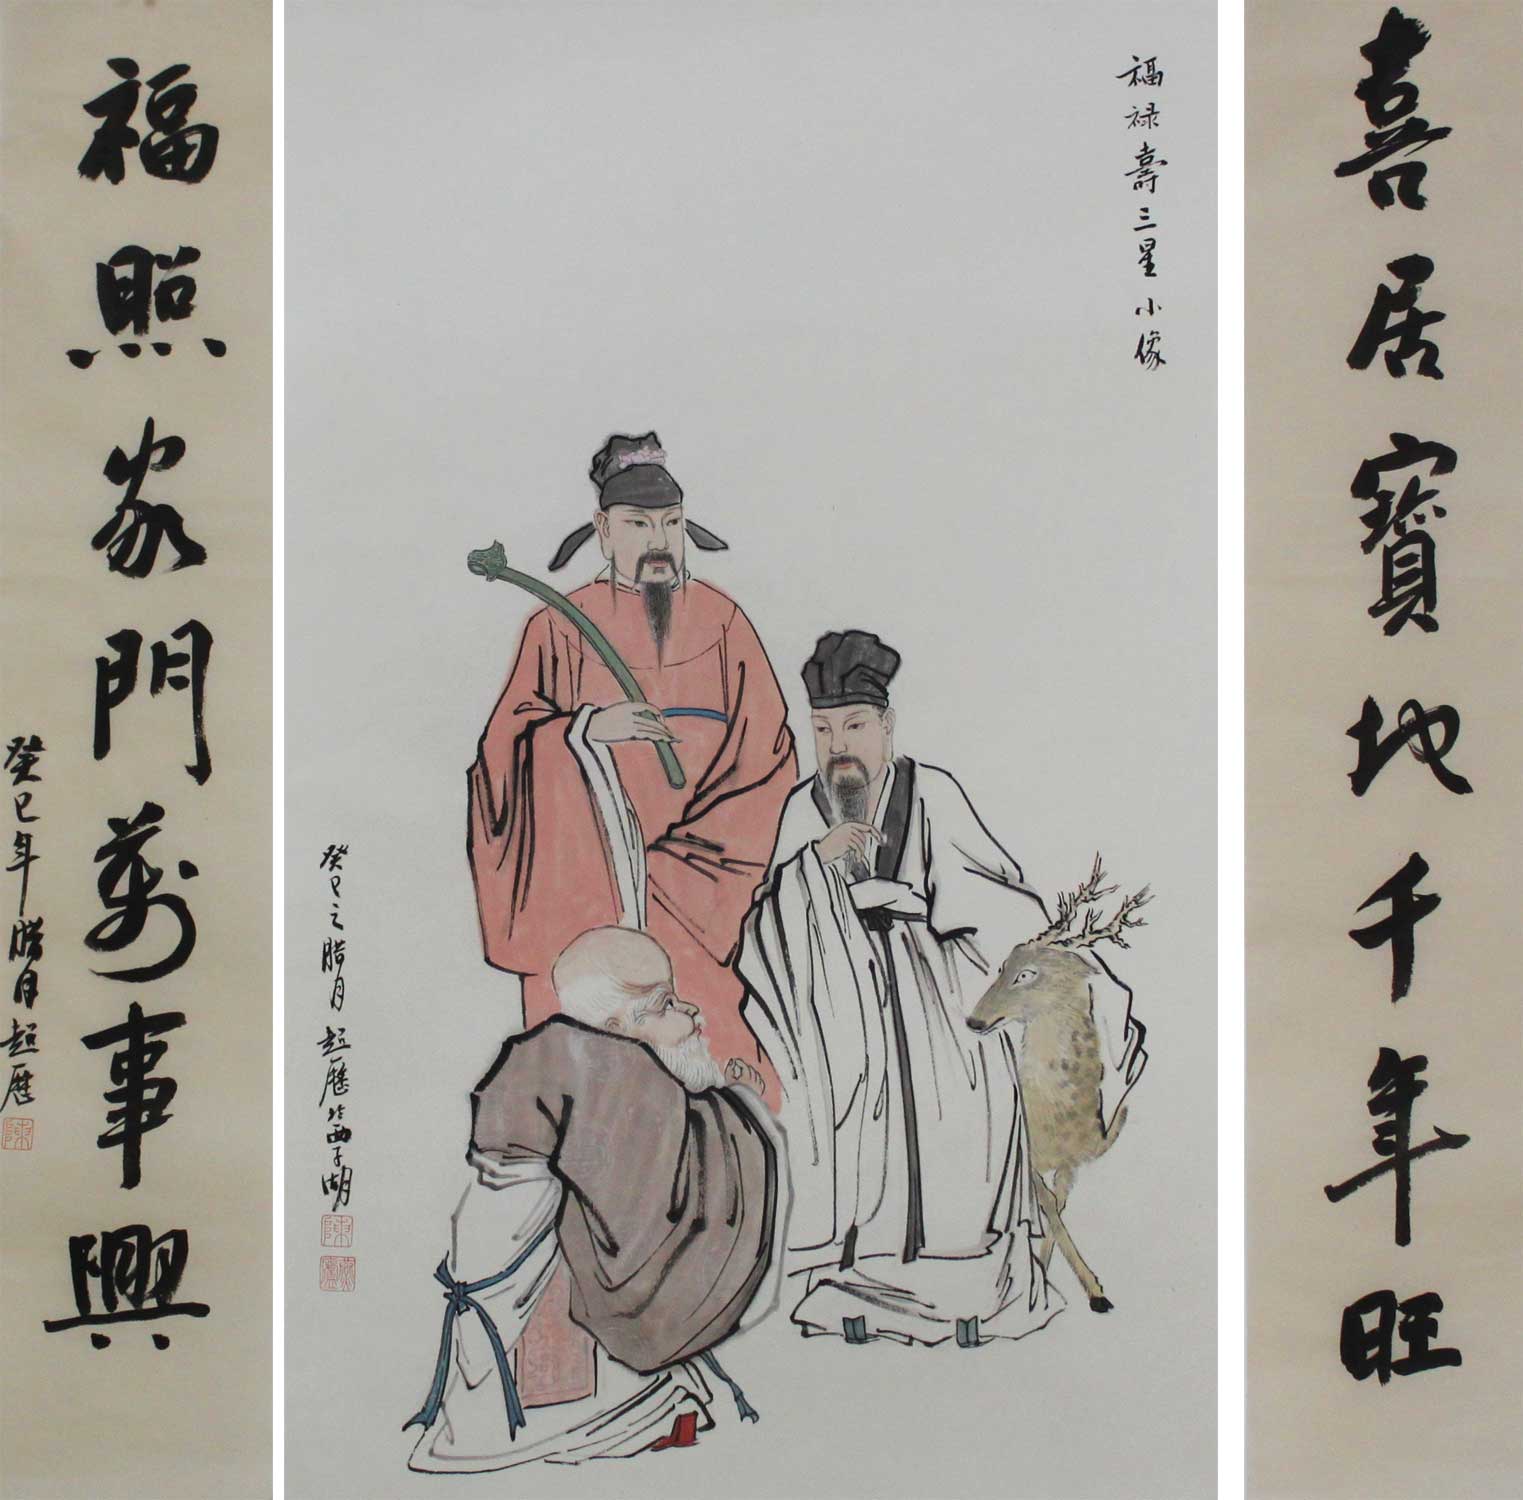 喜居寶地千年旺
福祿壽三星小像
癸巳之臘月趙歷於西子湖
福照家門萬事興
癸巳年臘月趙歷
陳